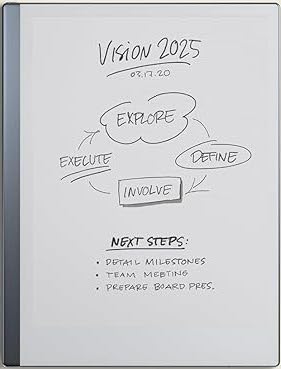 VISION 2025
03.17.20
EXPLORE
EXECUTE
DEFINE
INVOLVE
NEXT STEPS:
• DETAIL MILESTONES
• TEAM MEETING
• PREPARE BOARD PRES.